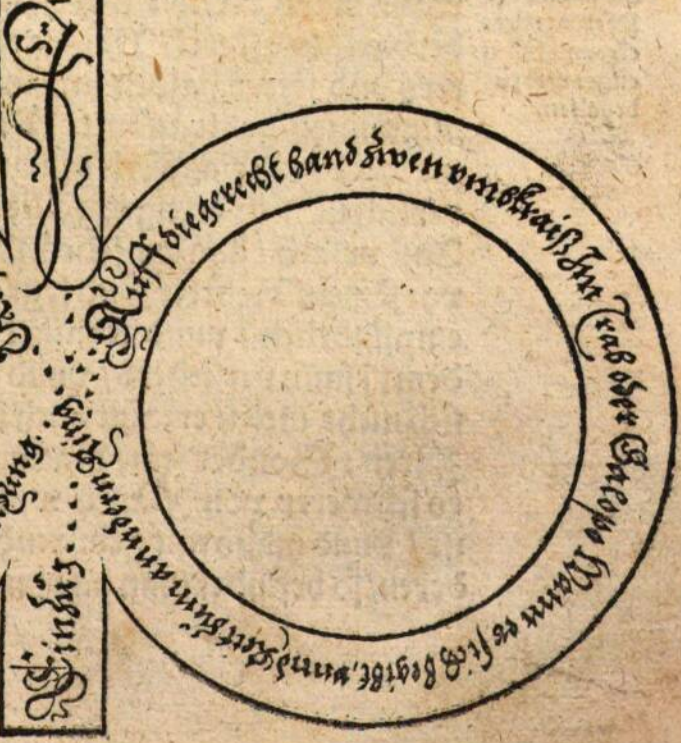 Auff die gerecht hand zwen vmbkraiß Im Trab oder Galopo Wann er sich begibt, vnnd Reit zum anndern Ring
Einzug